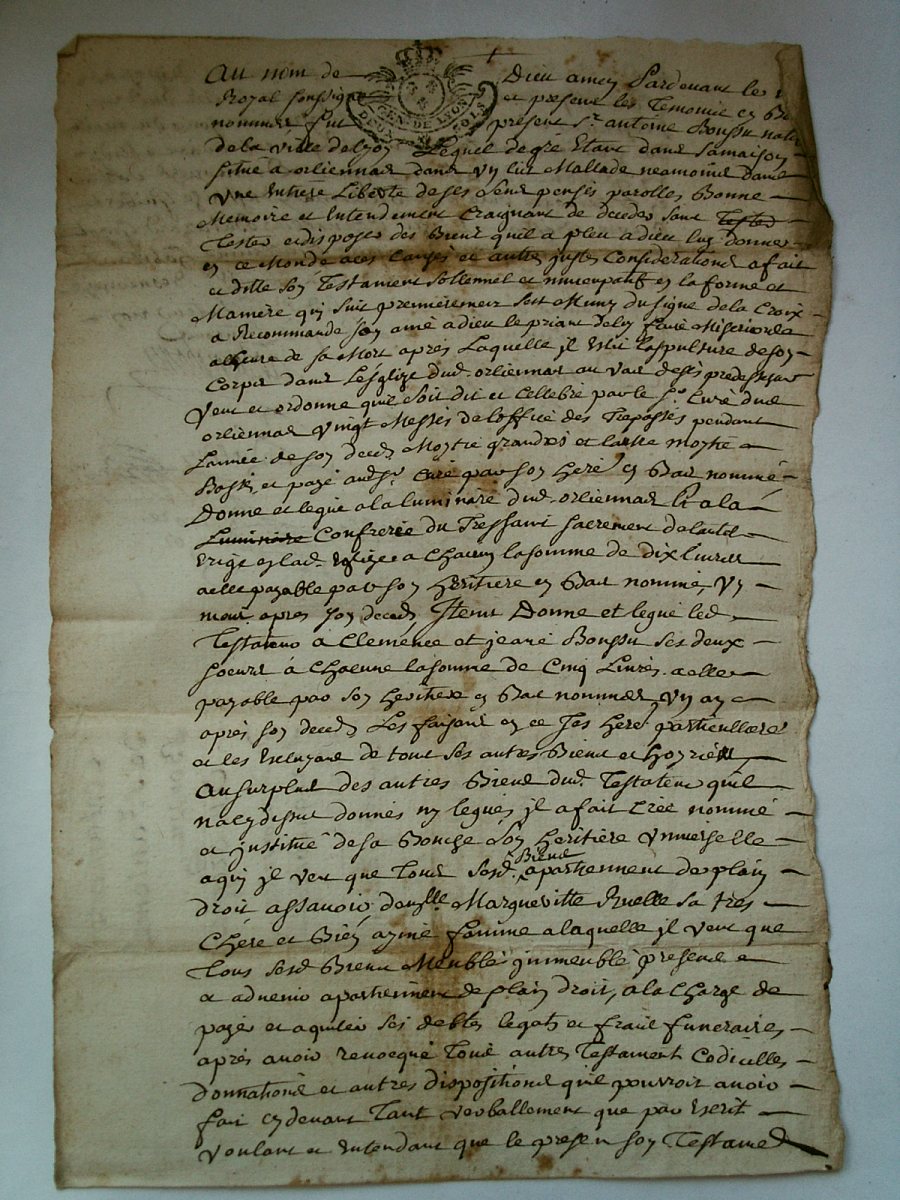 Au nom de Dieu amen Pardevant le
Royal soussigné et present les Temoins en Bas
GEN. DE LYON SOLS
nommes fut present Sr. antoine Boussu natif
de la ville de lyon Lequel de gré Etant dans sa maison
situé a orliennas dans un lict Mallade neamoins dans
une Entiere Liberté de ses sens pensés parolles Bonne
Memoire et Entendement Craignant de deceder sans Tester
Tester et disposer des Biens quil a pleu a dieu luy donner
en ce Monde a ces Causes et autres justes Considerations a fait
et ditte son Testament sollennel et nuncupatif en la forme et
Maniere qui suit premierement sest Muny du signe de la Croix
a Recommandé son ame a dieu le priant de luy faire Misericorde
a lheure de sa Mort apres Laquelle jl Eslit la spulture de son
Corps dans Lesglize dud. orliennas au vas de ses predesseseurs
Veut et ordonne quil soit dit et Cellebré par le Sr. Curé dud.
orliennas Vingt Messes de loffice des Trepassés pendant
Lannée de son deces Moytié grandes et lautre moytié
Basse, et payé aud. Sr. Curé par son here. en Bas nommé
Donne et legue a la luminaire dud. orliennas Et a la
Luminaire Confrerie du Tressaint sacrement de lautel
Erigé en lad. Eglize a Chacun la somme de dix livres
a elle payable par son heritiere en Bas nommé, un
mois apres son deces, Jtem Donne et legue led.
Testateur à Clemence et jeane Boussu ses deux
soeurs à Chacune la somme de Cinq Livres a elles
payable par son heritiere en Bas nommée un an
apres son deces Les faisant en ce ses here. particullieres
et les Excluant de tout ses autres Biens et hoyrie
Au surplus des autres Biens dud. Testateur quil
na cy dessus donnés ny legués jl a fait Créé nommé
et justitué de sa Bouche Son heritiere Universelle
Biens
a qui jl veut que Tous sesd. apartiennent de plain
droit assavoir demlle Margueritte Ruelle sa tres
Chere et Bien aymé famme a laquelle jl veut que
Tous sesd. Biens Meuble jmmeuble present
et advenir apartiennent de plain droit, a la Charge de
payer et aquiter ses debtes legats et frais funeraires
apres avoir revocqué Tous autres Testament Codicilles
donnations et autres dispositions quil pourroit avoir
fait cy devant Tant verballement que par Escrit
voulant et Entendant que le presen son Testament